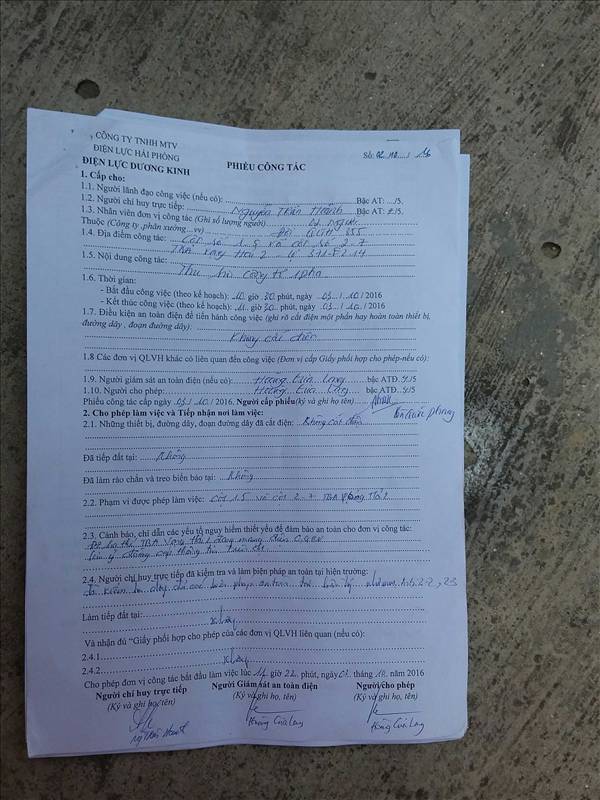 CÔNG TY TNHH MTV
ĐIỆN LỰC HẢI PHÒNG
ĐIỆN LỰC DƯƠNG KINH
PHIẾU CÔNG TÁC
Số:
1. Cấp cho:
1.1. Người lãnh đạo công việc (nếu có): Bậc AT: .../5.
1.2. Người chỉ huy trực tiếp: Nguyễn Trần Bậc AT: /5.
1.3. Nhân viên đơn vị công tác (Ghi số lượng người)
Thuộc (Công ty ,phân xưởng...vv)
1.4. Địa điểm công tác: Cột số 1.5 và cột số 2.7
1.5. Nội dung công tác:
Thu hồi công tơ 1pha
1.6. Thời gian:
- Bắt đầu công việc (theo kế hoạch): 10 giờ 30 phút, ngày 03 / 10 / 2016
- Kết thúc công việc (theo kế hoạch): 11 giờ 30 phút, ngày 03 / 10 / 2016
1.7. Điều kiện an toàn điện để tiến hành công việc (ghi rõ cắt điện một phần hay hoàn toàn thiết bị,
đường dây , đoạn đường dây):
Không cắt điện
1.8 Các đơn vị QLVH khác có liên quan đến công việc (Đơn vị cấp Giấy phối hợp cho phép-nếu có):
1.9. Người giám sát an toàn điện (nếu có): Hoàng Cửu Long bậc ATĐ /5
1.10. Người cho phép: Hoàng Cửu Long bậc ATĐ /5
Phiếu công tác cấp ngày 03 / 10 / 2016. Người cấp phiếu(ký và ghi họ tên)
2. Cho phép làm việc và Tiếp nhận nơi làm việc:
2.1. Những thiết bị, đường dây, đoạn đường dây đã cắt điện: Không cắt điện
Đã tiếp đất tại: Không
Đã làm rào chắn và treo biển báo tại: Không
2.2. Phạm vi được phép làm việc: Cột 1.5 và cột 2.7 TBA
2.3. Cảnh báo, chỉ dẫn các yếu tố nguy hiểm thiết yếu để đảm bảo an toàn cho đơn vị công tác:
2.4. Người chỉ huy trực tiếp đã kiểm tra và làm biện pháp an toàn tại hiện trường:
Làm tiếp đất tại: Không
Và nhận đủ "Giấy phối hợp cho phép của các đơn vị QLVH liên quan (nếu có):
2.4.1 Không
2.4.2
Cho phép đơn vị công tác bắt đầu làm việc lúc giờ 22 phút, ngày 03 tháng 10 năm 2016
Người chỉ huy trực tiếp Người Giám sát an toàn điện Người cho phép
(Ký và ghi họ, tên) (Ký và ghi họ, tên) (Ký và ghi họ, tên)
Hoàng Cửu Long Hoàng Cửu Long